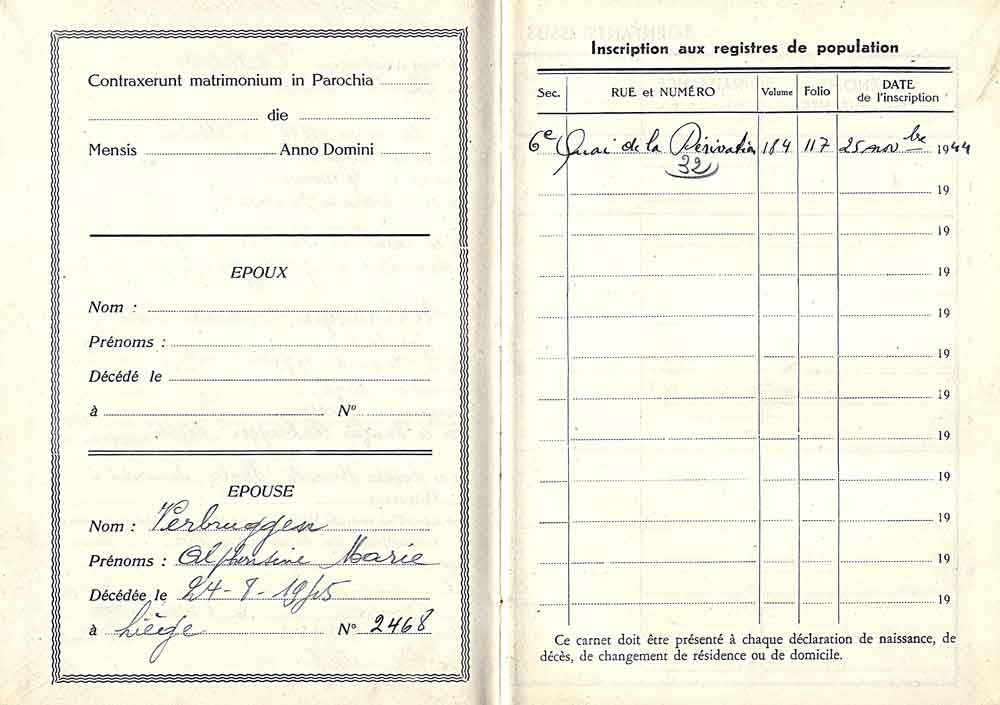 Contraxerunt matrimonium in Parochia
die
Mensis Anno Domini
EPOUX
Nom :
Prénoms :
Décédé le
à N°
EPOUSE
Nom : Verbruggen
Prénoms : Alphonsine Marie
Décédée le 24-8-1945
à Liège N° 2468
Inscription aux registres de population
Sec. RUE et NUMÉRO Volume Folio DATE de l'inscription
6e Quai de la Dérivation 184 117 25 nov bre 1944
32
19
19
19
19
19
19
19
19
19
19
19
Ce carnet doit être présenté à chaque déclaration de naissance, de
décès, de changement de résidence ou de domicile.